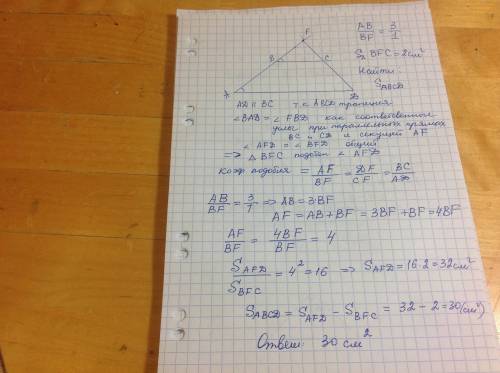 F
B C
A D
AB/BF = 3/1
S BFC = 2см²
Найти
S ABCD
AD || BC т.к ABCD трапеция
∠BAD = ∠FBD как соответствен
углы при параллельных прямых
BC и CD и секущей AF
∠AFD = ∠BFD общий
=> △BFC подобен ∠AFD
Коэф подобия = AF/BF = DF/CF = BC/AD
AB/BF = 3/1 => AB = 3·BF
AF = AB + BF = 3BF + BF = 4BF
AF/BF = 4BF/BF = 4
S AFD/S BFC = 4² = 16 => S AFD = 16·2 = 32см²
S ABCD = S AFD − S BFC = 32 − 2 = 30(см²)
Ответ: 30 см²